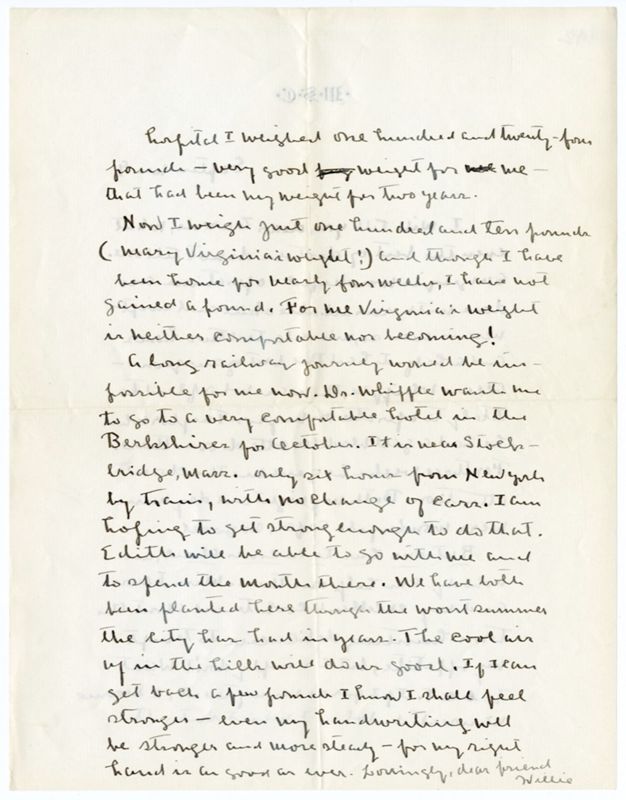 hospital I weighed one hundred and twenty-four
pounds – very good weight for me –
that had been my weight for two years.
Now I weigh just one hundred and ten pounds
(Mary Virginia's weight!) and though I have
been home for nearly four weeks, I have not
gained a pound. For me Virginia's weight
is neither comfortable nor becoming!
A long railway journey would be im-
possible for me now. Dr. Whipple wants me
to go to a very comfortable hotel in the
Berkshires for October. It is near Stock-
bridge, Mass. only six hours from New York
by train, with no change of cars. I am
hoping to get strong enough to do that.
Edith will be able to go with me and
to spend the month there. We have both
been planted here through the worst summer
the city has had in years. The cool air
up in the hills will do us good. If I can
get back a few pounds I know I shall feel
stronger – even my handwriting will
be stronger and more steady – for my right
hand is as good as ever. Lovingly, dear friend
Willie